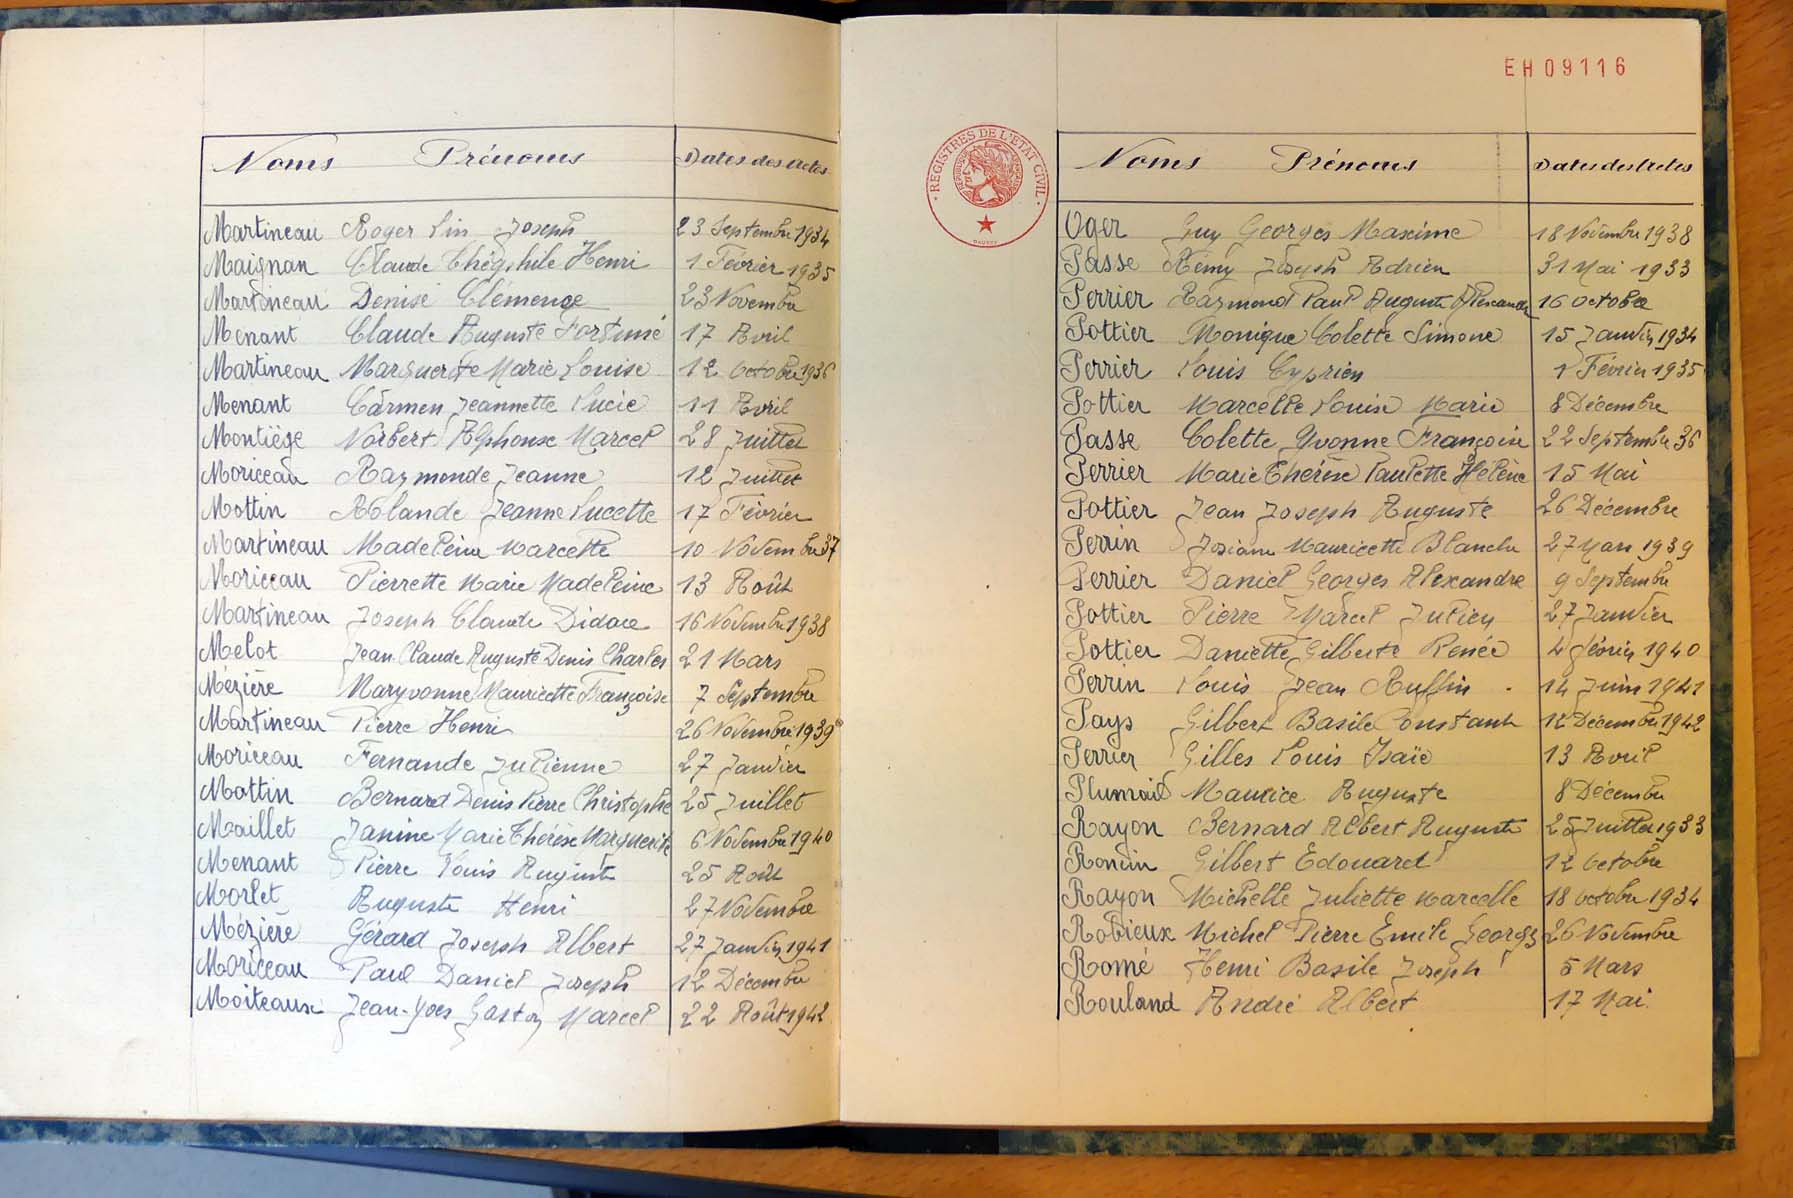 Noms Prénoms Dates des Actes
Martineau Roger Lin Joseph 23 Septembre 1934
Maignan Claude Théophile Henri 1 Février 1935
Martineau Denise Clémence 23 Novembre
Menant Claude Auguste Fortuné 17 Avril
Martineau Marguerite Marie Louise 12 Octobre 1936
Menant Carmen Jeannette Lucie 11 Avril
Montiège Norbert Alphonse Marcel 28 Juillet
Moriceau Raymonde Jeanne 12 Juillet
Mottin Rolande Jeanne Lucette 17 Février
Martineau Madeleine Marcelle 10 Novembre 37
Moriceau Pierrette Marie Madeleine 13 Août
Martineau Joseph Claude 16 Novembre 1938
Melot Jean Claude Auguste Denis Charles 21 Mars
Mézière Maryvonne Mauricette Françoise 7 Septembre
Martineau Pierre Henri 26 Novembre 1939
Moriceau Fernande Julienne 27 Janvier
Mottin Bernard Denis Pierre Christophe 25 Juillet
Maillet Janine Marie Thérèse Marguerite 6 Novembre 1940
Menant Pierre Louis Auguste 25 Août
Morlet Auguste Henri 27 Novembre
Mézière Gérard Joseph Albert 27 Janvier 1941
Moriceau Paul Daniel Joseph 12 Décembre
Moiteaux Jean-Yves Gaston Marcel 22 Août 1942
EH09116
· REGISTRES DE L'ETAT CIVIL ·
Noms Prénoms Dates des Actes
Oger Guy Georges Maxime 18 Novembre 1938
Passe Rémy Joseph Adrien 31 Mai 1933
Perrier Raymond Paul Auguste Alexandre 16 Octobre
Pottier Monique Colette Simone 15 Janvier 1934
Perrier Louis Cyprien 1 Février 1935
Pottier Marcelle Louise Marie 8 Décembre
Passe Colette Yvonne Françoise 22 Septembre 36
Perrier Marie Thérèse Paulette Hélène 15 Mai
Pottier Jean Joseph Auguste 26 Décembre
Perrin Josiane Mauricette Blanche 27 Mars 1939
Perrier Daniel Georges Alexandre 9 Septembre
Pottier Pierre Marcel Julien 27 Janvier
Pottier Danielle Gilberte Renée 4 février 1940
Perrin Louis Jean Ruffin 14 Juin 1941
Pays Gilbert Basile Constant 12 Décembre 1942
Perrier Gilles Louis Isaïe 13 Avril
Plumail Maurice Auguste 8 Décembre
Rayon Bernard Albert Auguste 25 Juillet 1933
Roncin Gilbert Edouard 12 Octobre
Rayon Michelle Juliette Marcelle 18 Octobre 1934
Robieux Michel Pierre Emile Georges 26 Novembre
Romé Henri Basile Joseph 5 Mars
Rouland André Albert 17 Mai